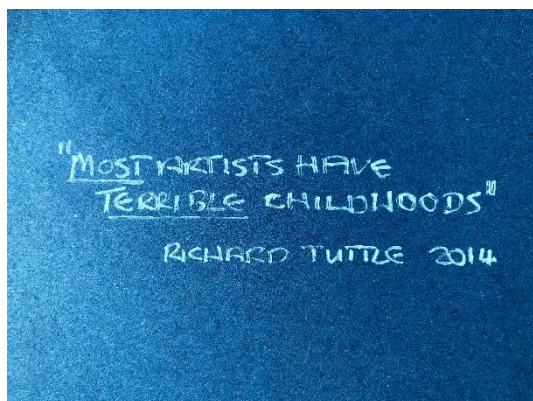 "MOST ARTISTS HAVE
TERRIBLE CHILDHOODS"
RICHARD TUTTLE 2014